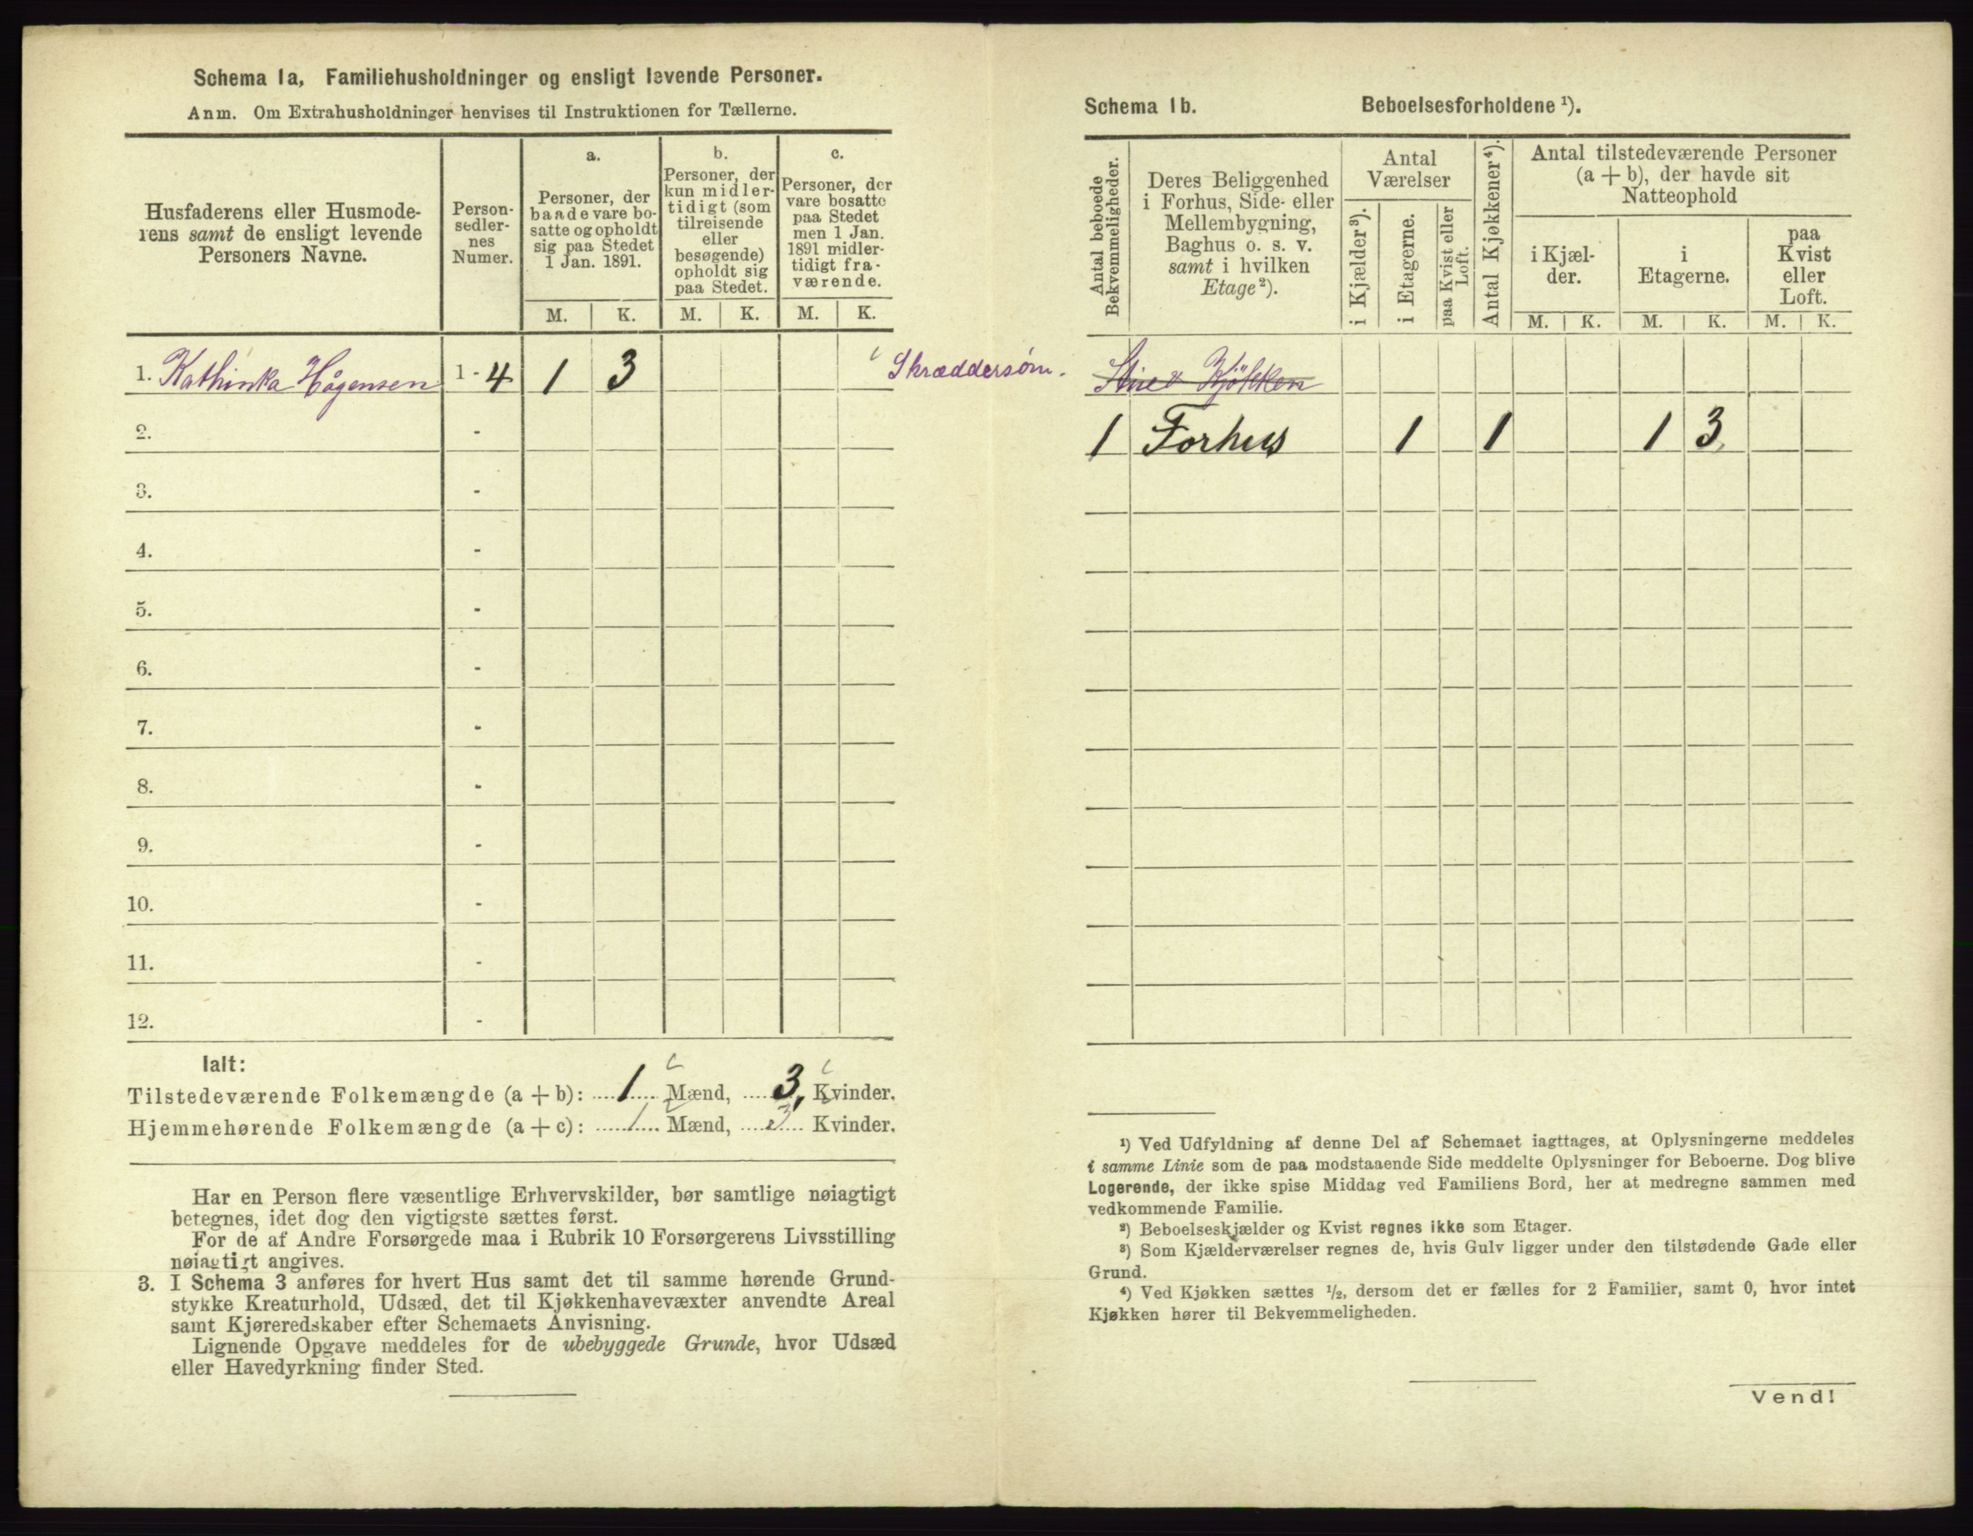 Schema 1a, Familiehusholdninger og ensligt levende Personer.
Anm. Om Extrahusholdninger henvises til Instruktionen for Tællerne.
Husfaderens eller Husmode-
rens samt de ensligt levende
Personers Navne.
Person-
sedler-
nes
Numer.
a.
Personer, der
baade vare bo-
satte og opholdt
sig paa Stedet
1 Jan. 1891.
b.
Personer, der
kun midler-
tidigt (som
tilreisende
eller
besøgende)
opholdt sig
paa Stedet.
c.
Personer, der
vare bosatte
paa Stedet
men 1 Jan.
1891 midler-
tidigt fra-
værende.
M. K. M. K. M. K.
1. Kathinka Hågensen 1 - 4 1 3 Skræddersøm.
2. -
3. -
4. -
5. -
6. -
7. -
8. -
9. -
10. -
11. -
12. -
Ialt:
Tilstedeværende Folkemængde (a + b): 1 Mænd, 3, Kvinder.
Hjemmehørende Folkemængde (a + c): 1 Mænd, 3 Kvinder.
Har en Person flere væsentlige Erhvervskilder, bør samtlige nøiagtigt
betegnes, idet dog den vigtigste sættes først.
For de af Andre Forsørgede maa i Rubrik 10 Forsørgerens Livsstilling
nøiagtigt angives.
3. I Schema 3 anføres for hvert Hus samt det til samme hørende Grund-
stykke Kreaturhold, Udsæd, det til Kjøkkenhavevæxter anvendte Areal
samt Kjøreredskaber efter Schemaets Anvisning.
Lignende Opgave meddeles for de ubebyggede Grunde, hvor Udsæd
eller Havedyrkning finder Sted.
Schema 1b. Beboelsesforholdene ¹).
Antal beboede
Bekvemmeligheder.
Deres Beliggenhed
i Forhus, Side- eller
Mellembygning,
Baghus o. s. v.
samt i hvilken
Etage ²).
Antal
Værelser
i Kjælder ³).
i Etagerne.
paa Kvist eller
Loft.
Antal Kjøkkener ⁴).
Antal tilstedeværende Personer
(a + b), der havde sit
Natteophold
i Kjæl-
der.
i
Etagerne.
paa
Kvist
eller
Loft.
M. K. M. K. M. K.
Kjökken
1 Forhus 1 1 1 3
¹) Ved Udfyldning af denne Del af Schemaet iagttages, at Oplysningerne meddeles
i samme Linie som de paa modstaaende Side meddelte Oplysninger for Beboerne. Dog blive
Logerende, der ikke spise Middag ved Familiens Bord, her at medregne sammen med
vedkommende Familie.
²) Beboelseskjælder og Kvist regnes ikke som Etager.
³) Som Kjælderværelser regnes de, hvis Gulv ligger under den tilstødende Gade eller
Grund.
⁴) Ved Kjøkken sættes ½, dersom det er fælles for 2 Familier, samt 0, hvor intet
Kjøkken hører til Bekvemmeligheden.
Vend!